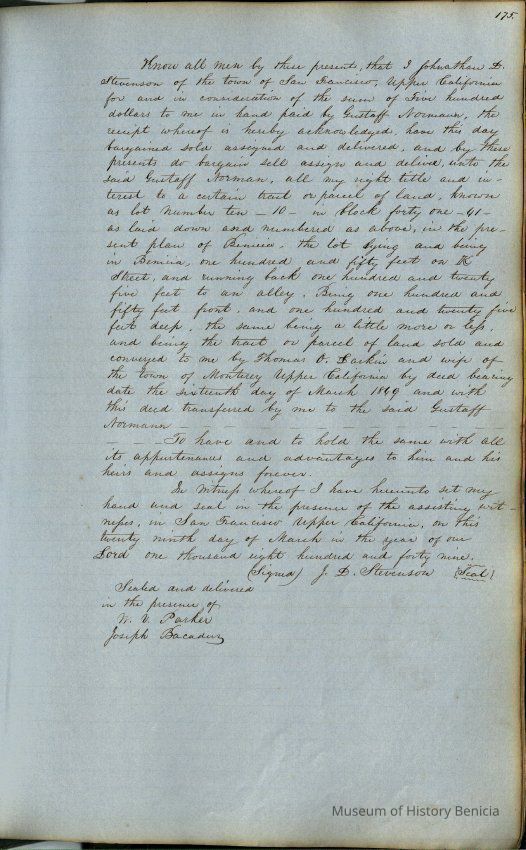 175.
Know all men by these present, that I Johnathan D.
Stevenson of the town of San Francisco, Upper California
for and in consideration of the sum of Five hundred
dollars to me in hand paid by Gustaff Normann, the
receipt whereof is hereby acknowledged, have this day
bargained sold assigned and delivered, and by these
presents do bargain sell assign and deliver, unto the
said Gustaff Norman, all my right title and in-
terest to a certain tract or parcel of land, known
as lot number ten – 10 – in block forty one – 41 –
as laid down and numbered as above, in the pre-
sent plan of Benicia. the lot lying and being
in Benicia, one hundred and fifty feet on K
Street, and running back one hundred and twenty
five feet to an alley. Being one hundred and
fifty feet front, and one hundred and twenty five
feet deep, the same being a little more or less,
and being the tract or parcel of land sold and
conveyed to me by Thomas O. Larkin and wife of
the town of Monterey Upper California by deed bearing
date the sixteenth day of March 1849 and with
this deed transferred by me to the said Gustaff
Normann
To have and to hold the same with all
its appurtenances and advantages to him and his
heirs and assigns forever.
In Witness whereof I have hereunto set my
hand and seal in the presence of the assisting wit-
nesses, in San Francisco Upper California, on this
twenty ninth day of March in the year of our
Lord one thousand eight hundred and forty nine.
(Signed) J. D. Stevenson (Seal)
Sealed and delivered
in the presence of
W. V. Parker
Joseph
Museum of History Benicia